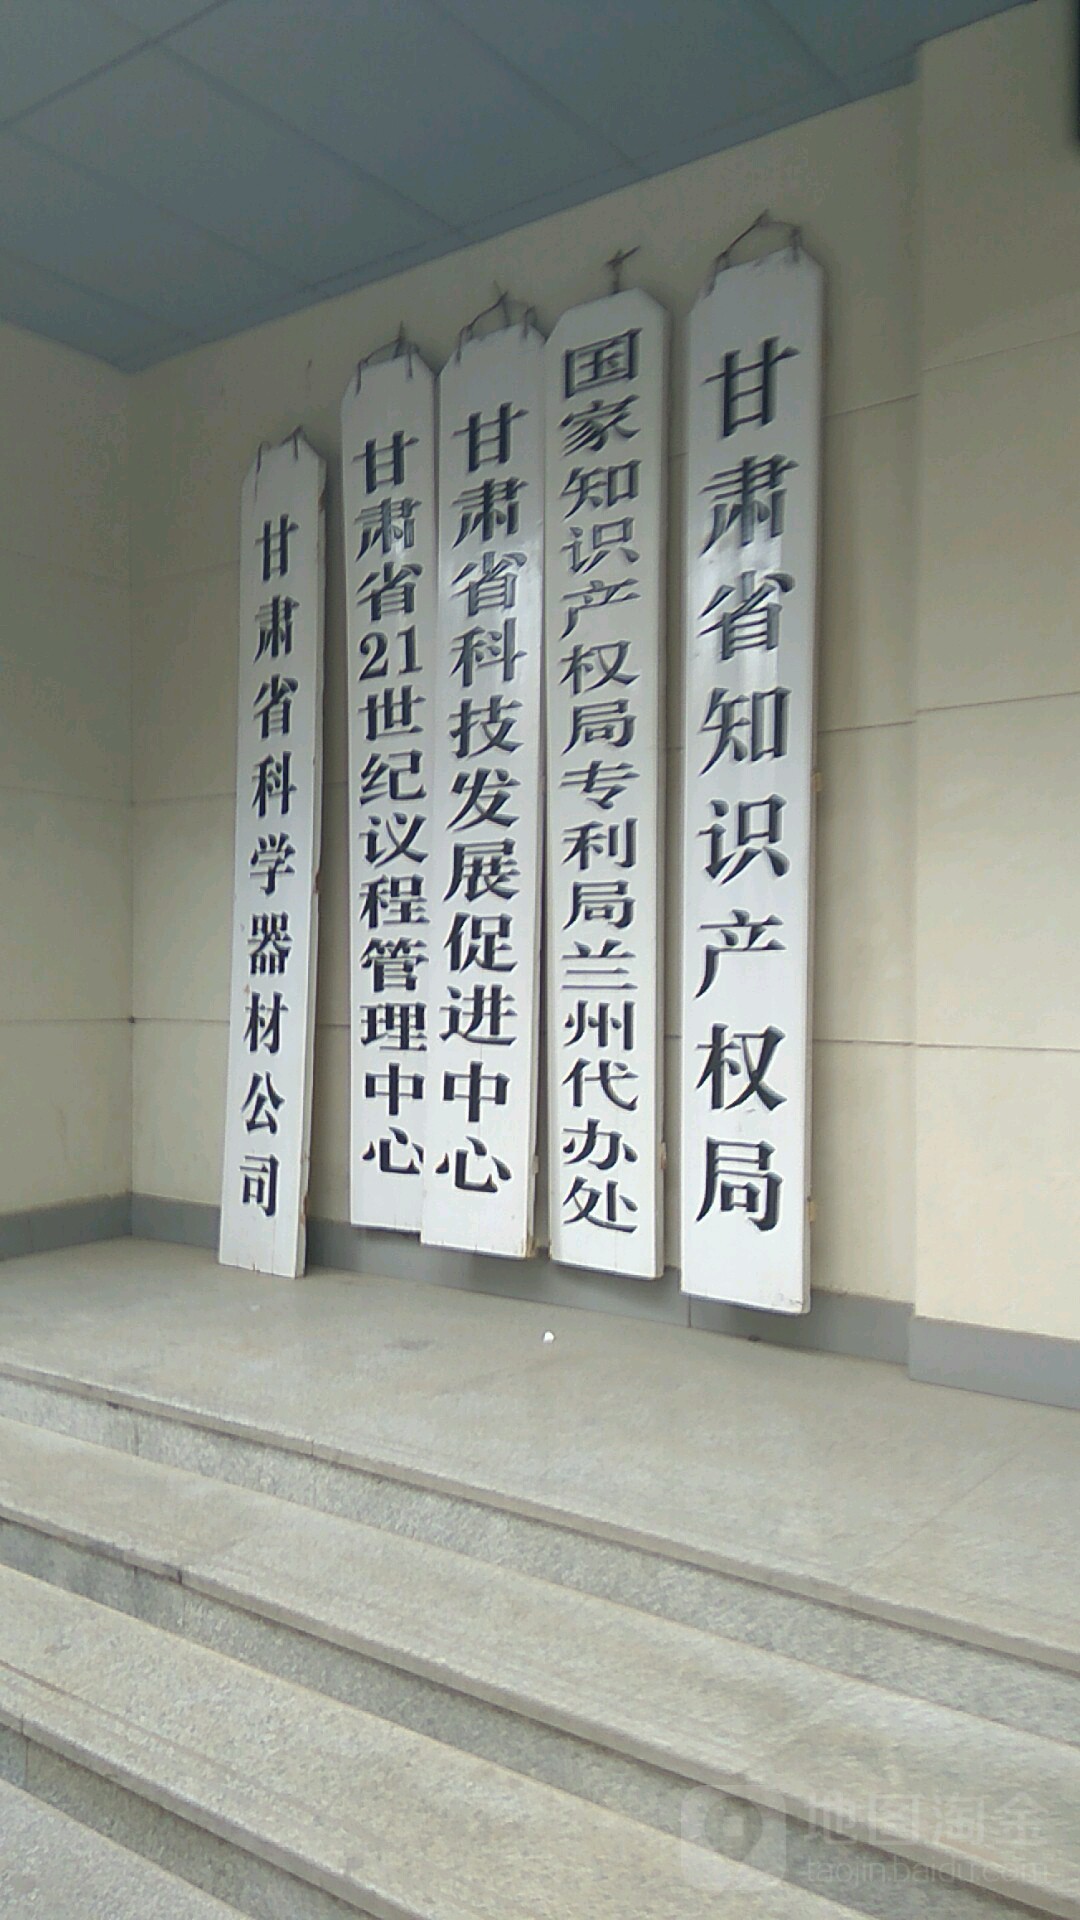 甘肃省科学器材公司
甘肃省21世纪议程管理中心
甘肃省科技发展促进中心
国家知识产权局专利局兰州代办处
甘肃省知识产权局
地图淘金
taojin.baidu.com